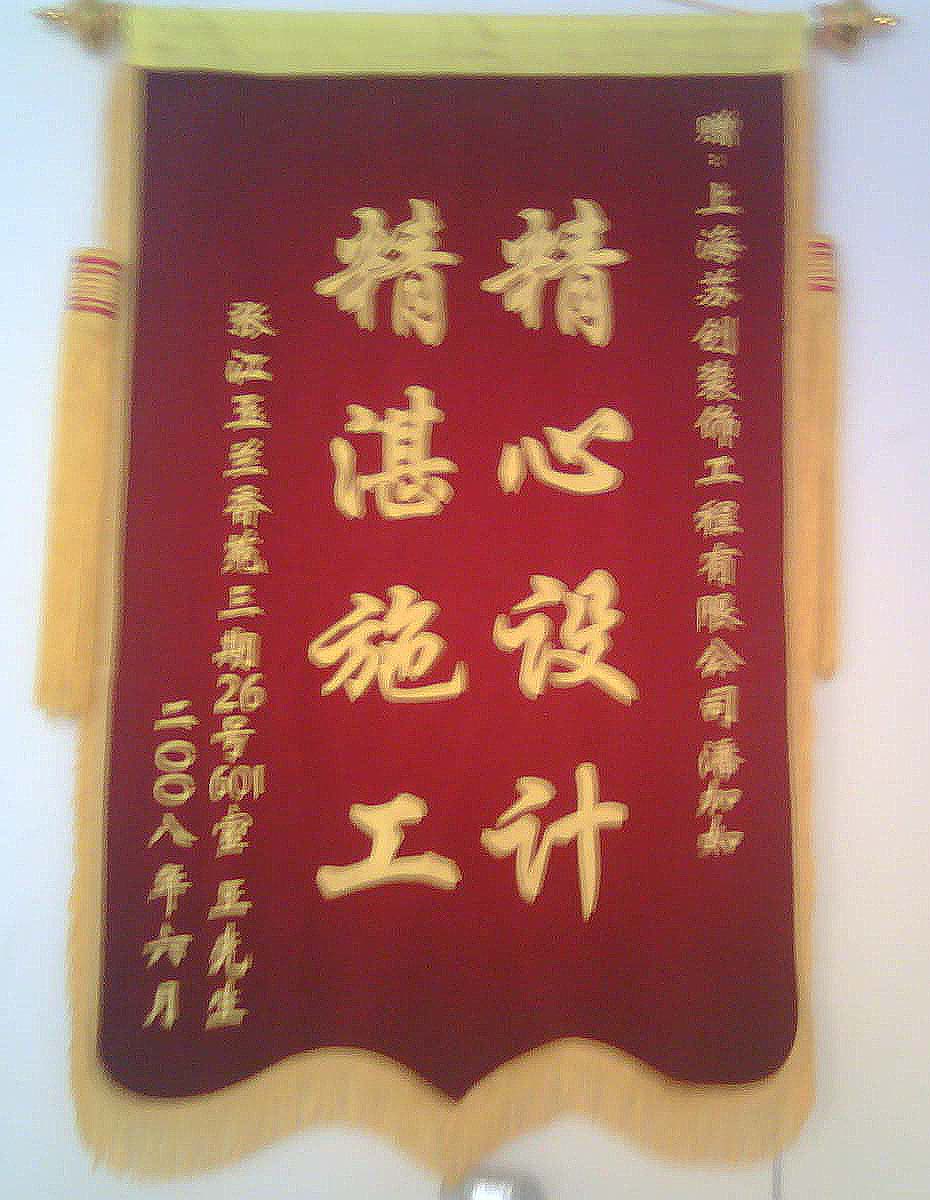 赠：上海苏创装饰工程有限公司潘加加
精心设计
精湛施工
张江玉兰香苑三期26号601室 王先生
二〇〇八年六月